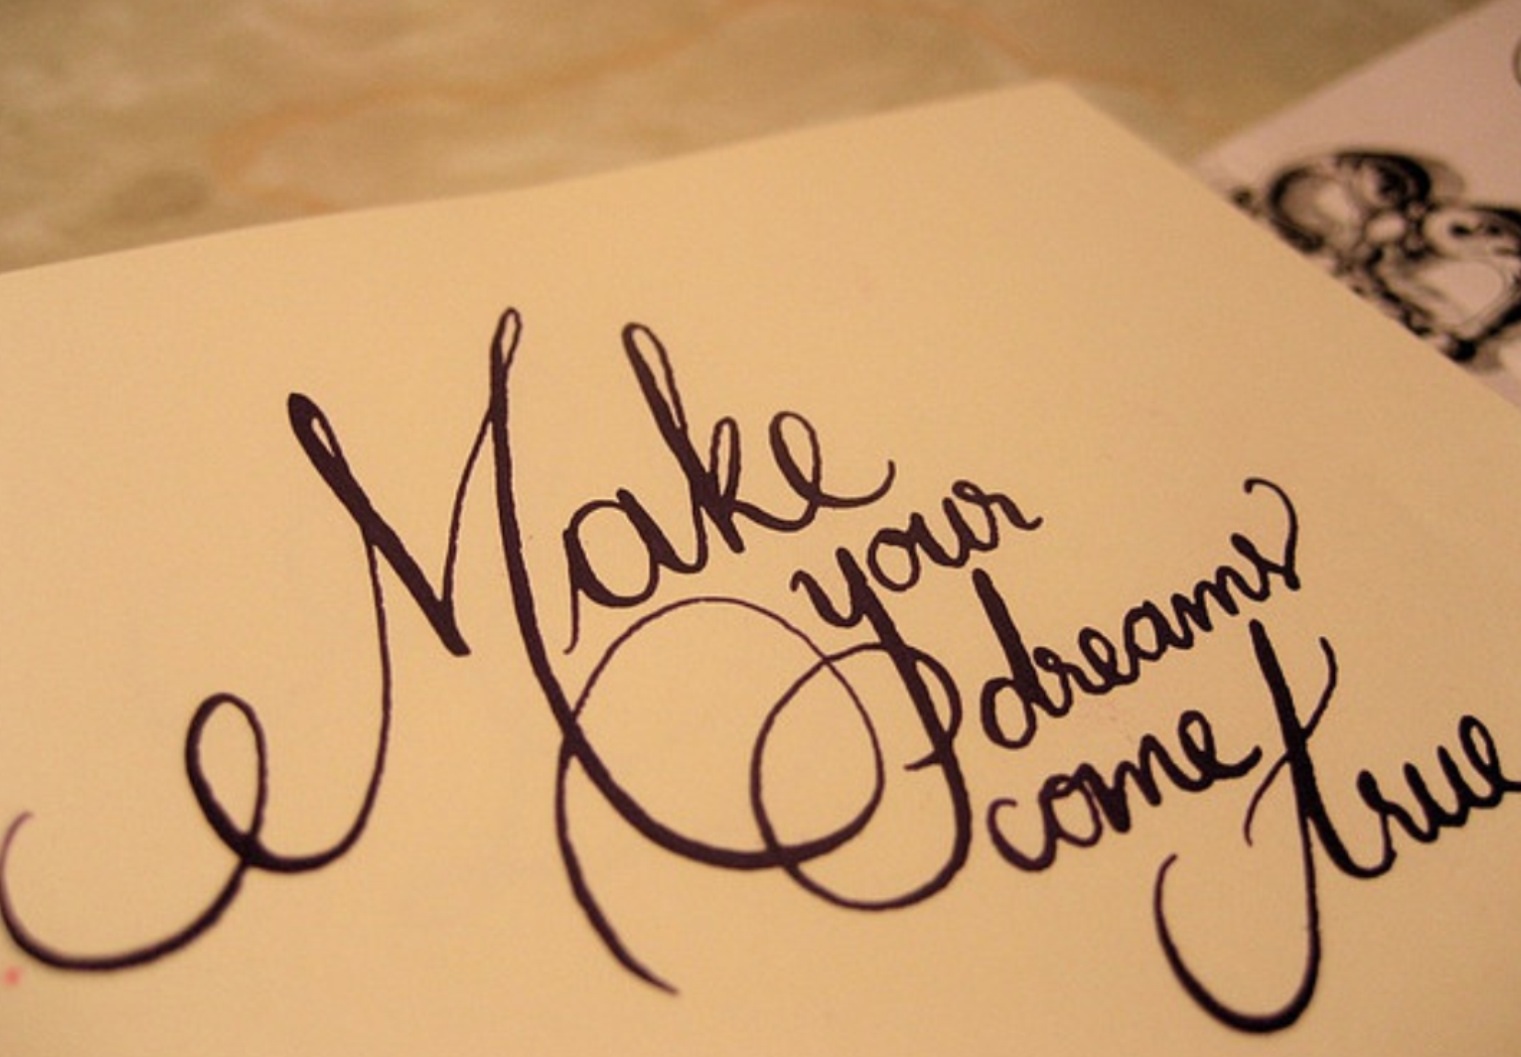 Make
your
dreams
come
true